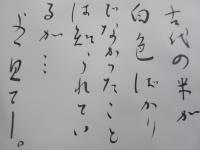 古代の米が
白色ばかり
でなかったこと
は知られてい
るが…
よく見て一。